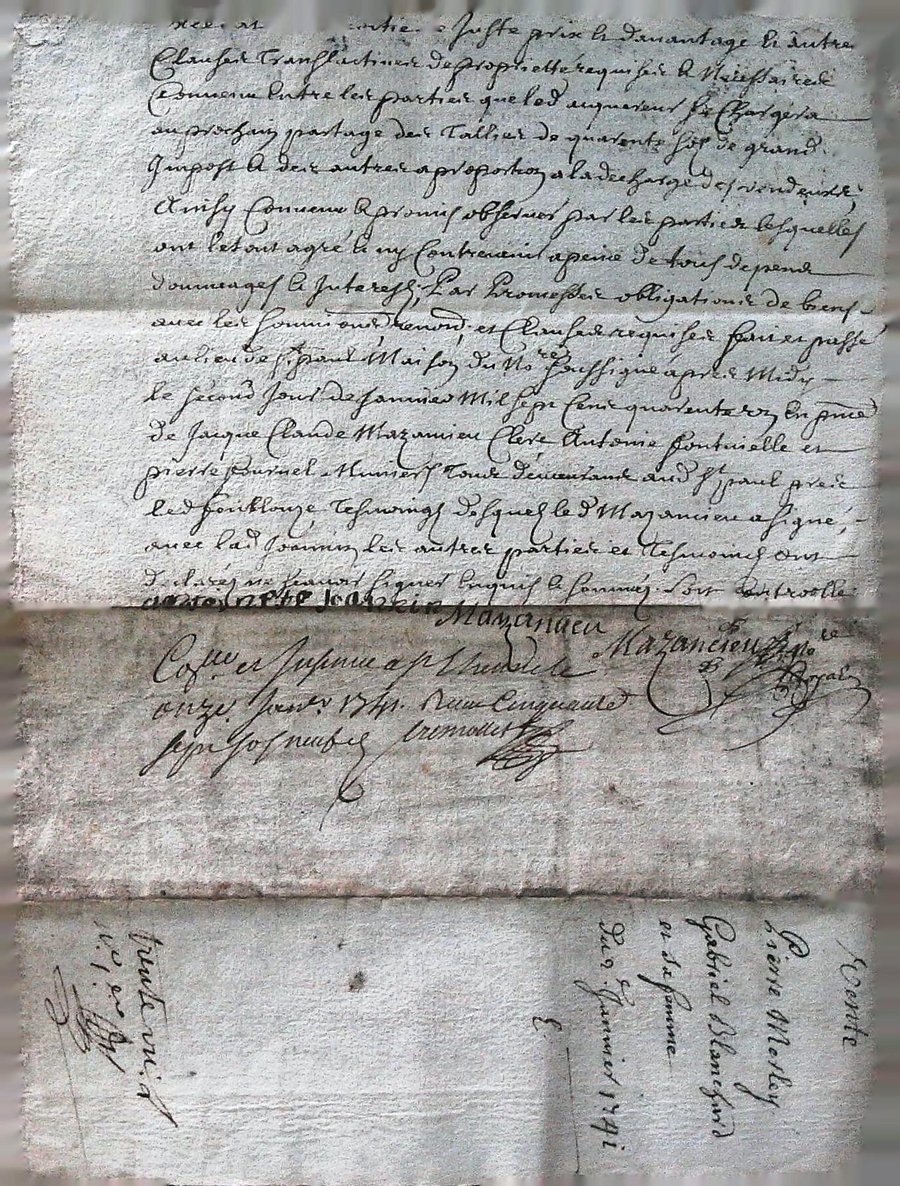 juste prix & davantage & autre
Clauses Translactives de proprietté requises & Necessaires
Convenu Entre les parties que led acquereur se Chargera
au prochain partage des Tallies de quarente sos de grand
Impost & des autres a proportion a la decharge des vendeurs,
Ainsy Convenu & promis observer par les parties lesquelles
ont le tout agrée & ny Contrevenir a peine de tous depens
dommages & Interests, Par Promesses obligations de biens
avec les soumions, renon, et Clauses requises fait et passé
au lieu de St paul Maison du No.re soussigné apres Midy
le second Jour de Janvier Mil sept Cens quarente un En pnce
de Jacque Claude Mazancieu Clerc Antoine fontvielle et
pierre fournel Muniers Tous demeurans aud St paul pres
led Tesmoings desquels led Mazancieu a signé,
avec lad Joannin les autres parties et Tesmoins ont
declarés ne scavoir signer Enquis & sommés Soit controllé
Mazancieu
Mazancieu No.re Royal
Co.lle et Insinué a St
onze Janv.r 1741. Receu Cinquante
sept sos neuf d
Vente
Pierre Merley
Gabriel Blanchard
et sa femme
du 2e Janvier 1741
trente